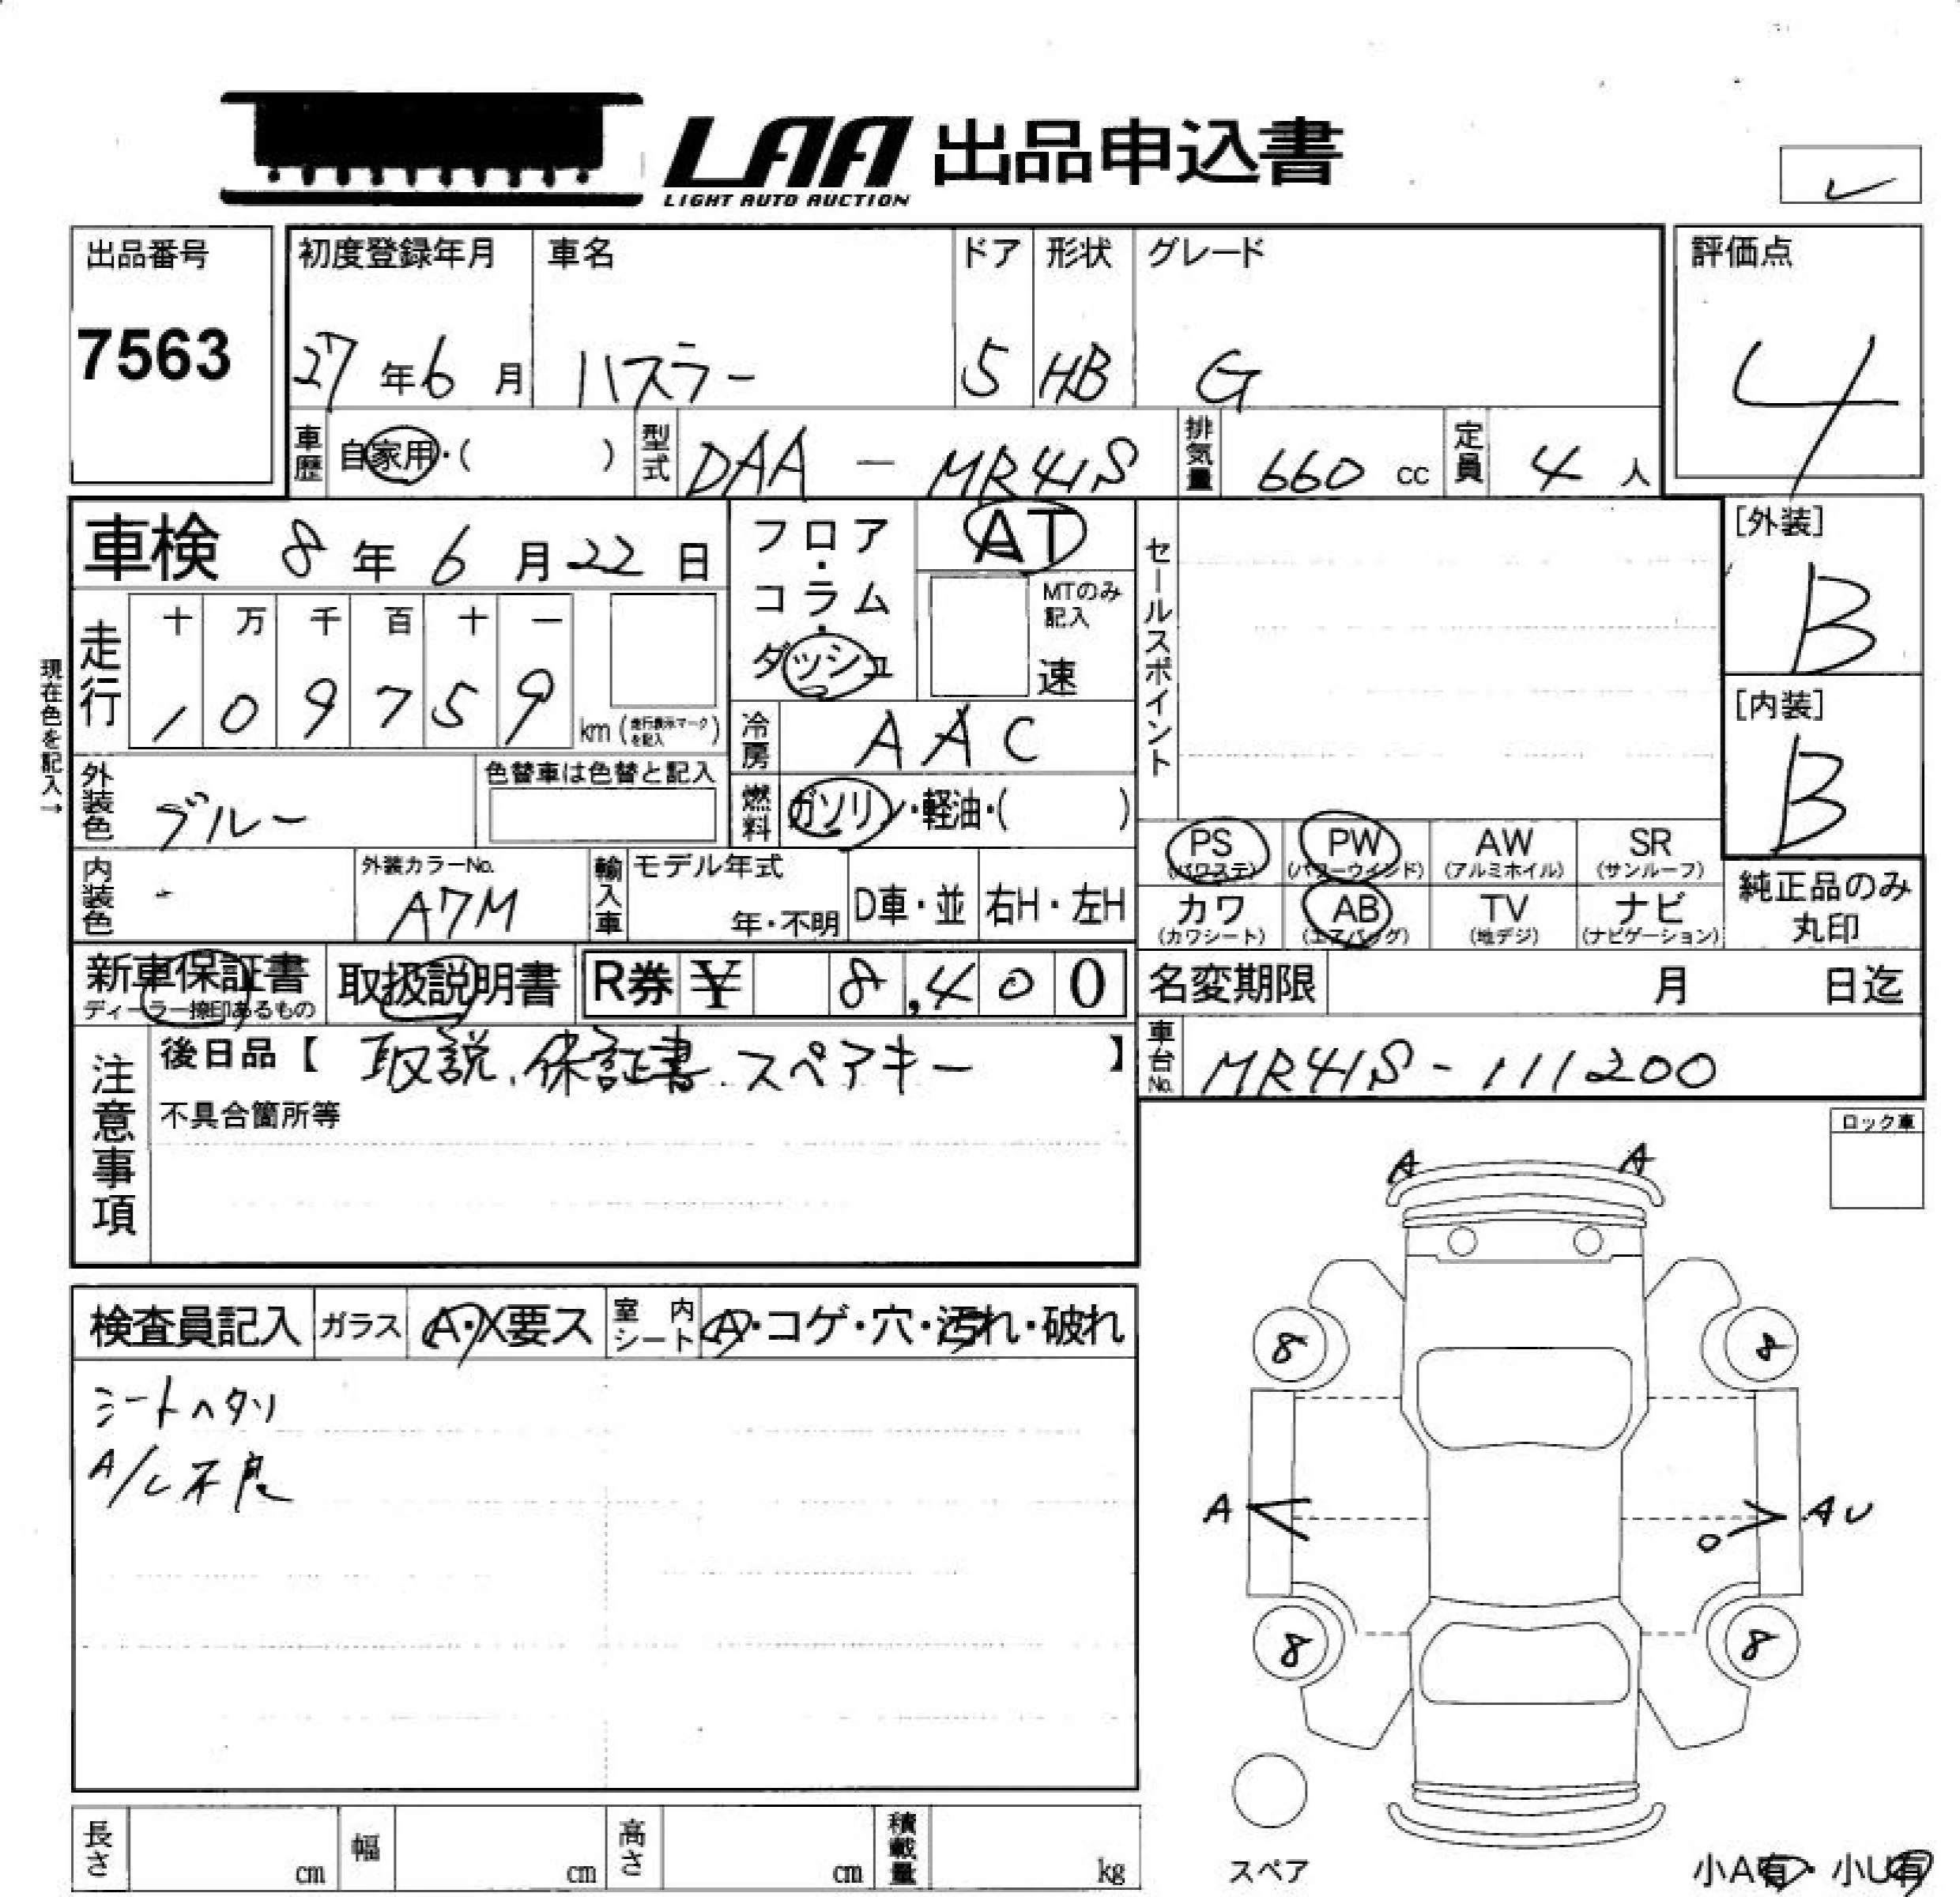 LAA 出品申込書
LIGHT AUTO AUCTION
レ
出品番号 初度登録年月 車名 ドア 形状 グレード 評価点
7563 27年6月 ハスラー 5 HB G 4
車歴 自家用・( ) 型式 DAA - MR41S 排気量 660 cc 定員 4 人
車検 8年6月22日 フロア・コラム・ダッシュ AT セールスポイント [外装]
MTのみ記入 B
速
走行 十 万 千 百 十 一
1 0 9 7 5 9 km (走行表示マークを記入)
現在色を記入→
冷房 AAC [内装]
B
外装色 ブルー 色替車は色替と記入 燃料 ガソリン・軽油・( )
PS (パワステ) PW (パワーウインド) AW (アルミホイル) SR (サンルーフ)
内装色 - 外装カラーNo. A7M 輸入車 モデル年式 年・不明 D車・並 右H・左H
カワ (カワシート) AB (エアバッグ) TV (地デジ) ナビ (ナビゲーション) 純正品のみ丸印
新車保証書 取扱説明書 R券 ¥ 8,400 名変期限 月 日迄
ディーラー捺印あるもの
注意事項 後日品【 取説、保証書、スペアキー 】 車台No. MR41S-111200
不具合箇所等
ロック車
A A
検査員記入 ガラス A・X要ス 室内シート A・コゲ・穴・汚れ・破れ
8 8
シートヘタリ
A/C不良
A AU
8 8
長さ cm 幅 cm 高さ cm 積載量 kg
スペア 小A有・小U有